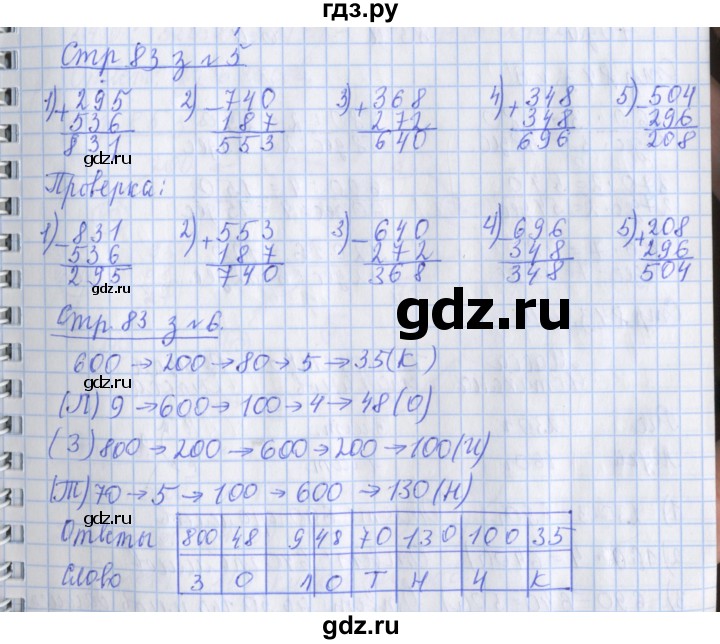 гдз.ру
Стр 83 з №5
1) + 295 2) - 740 3) + 368 4) + 348 5) - 504
536 187 272 348 296
831 553 640 696 208
Проверка:
1) - 831 2) + 553 3) - 640 4) 696 5) + 208
536 187 272 348 296
295 740 368 348 504
Стр. 83 з №6.
600 → 200 → 80 → 5 → 35 (К)
(Л) 9 → 600 → 100 → 4 → 48 (О)
(З) 800 → 200 → 600 → 200 → 100 (И)
(Т) 70 → 5 → 100 → 600 → 130 (Н)
Ответы 800 48 9 48 70 130 100 35
Слово З О Л О Т Н И К
gdz.ru
gdz.ru
gdz.ru
gdz.ru
gdz.ru
gdz.ru
gdz.ru
gdz.ru
gdz.ru
gdz.ru
gdz.ru